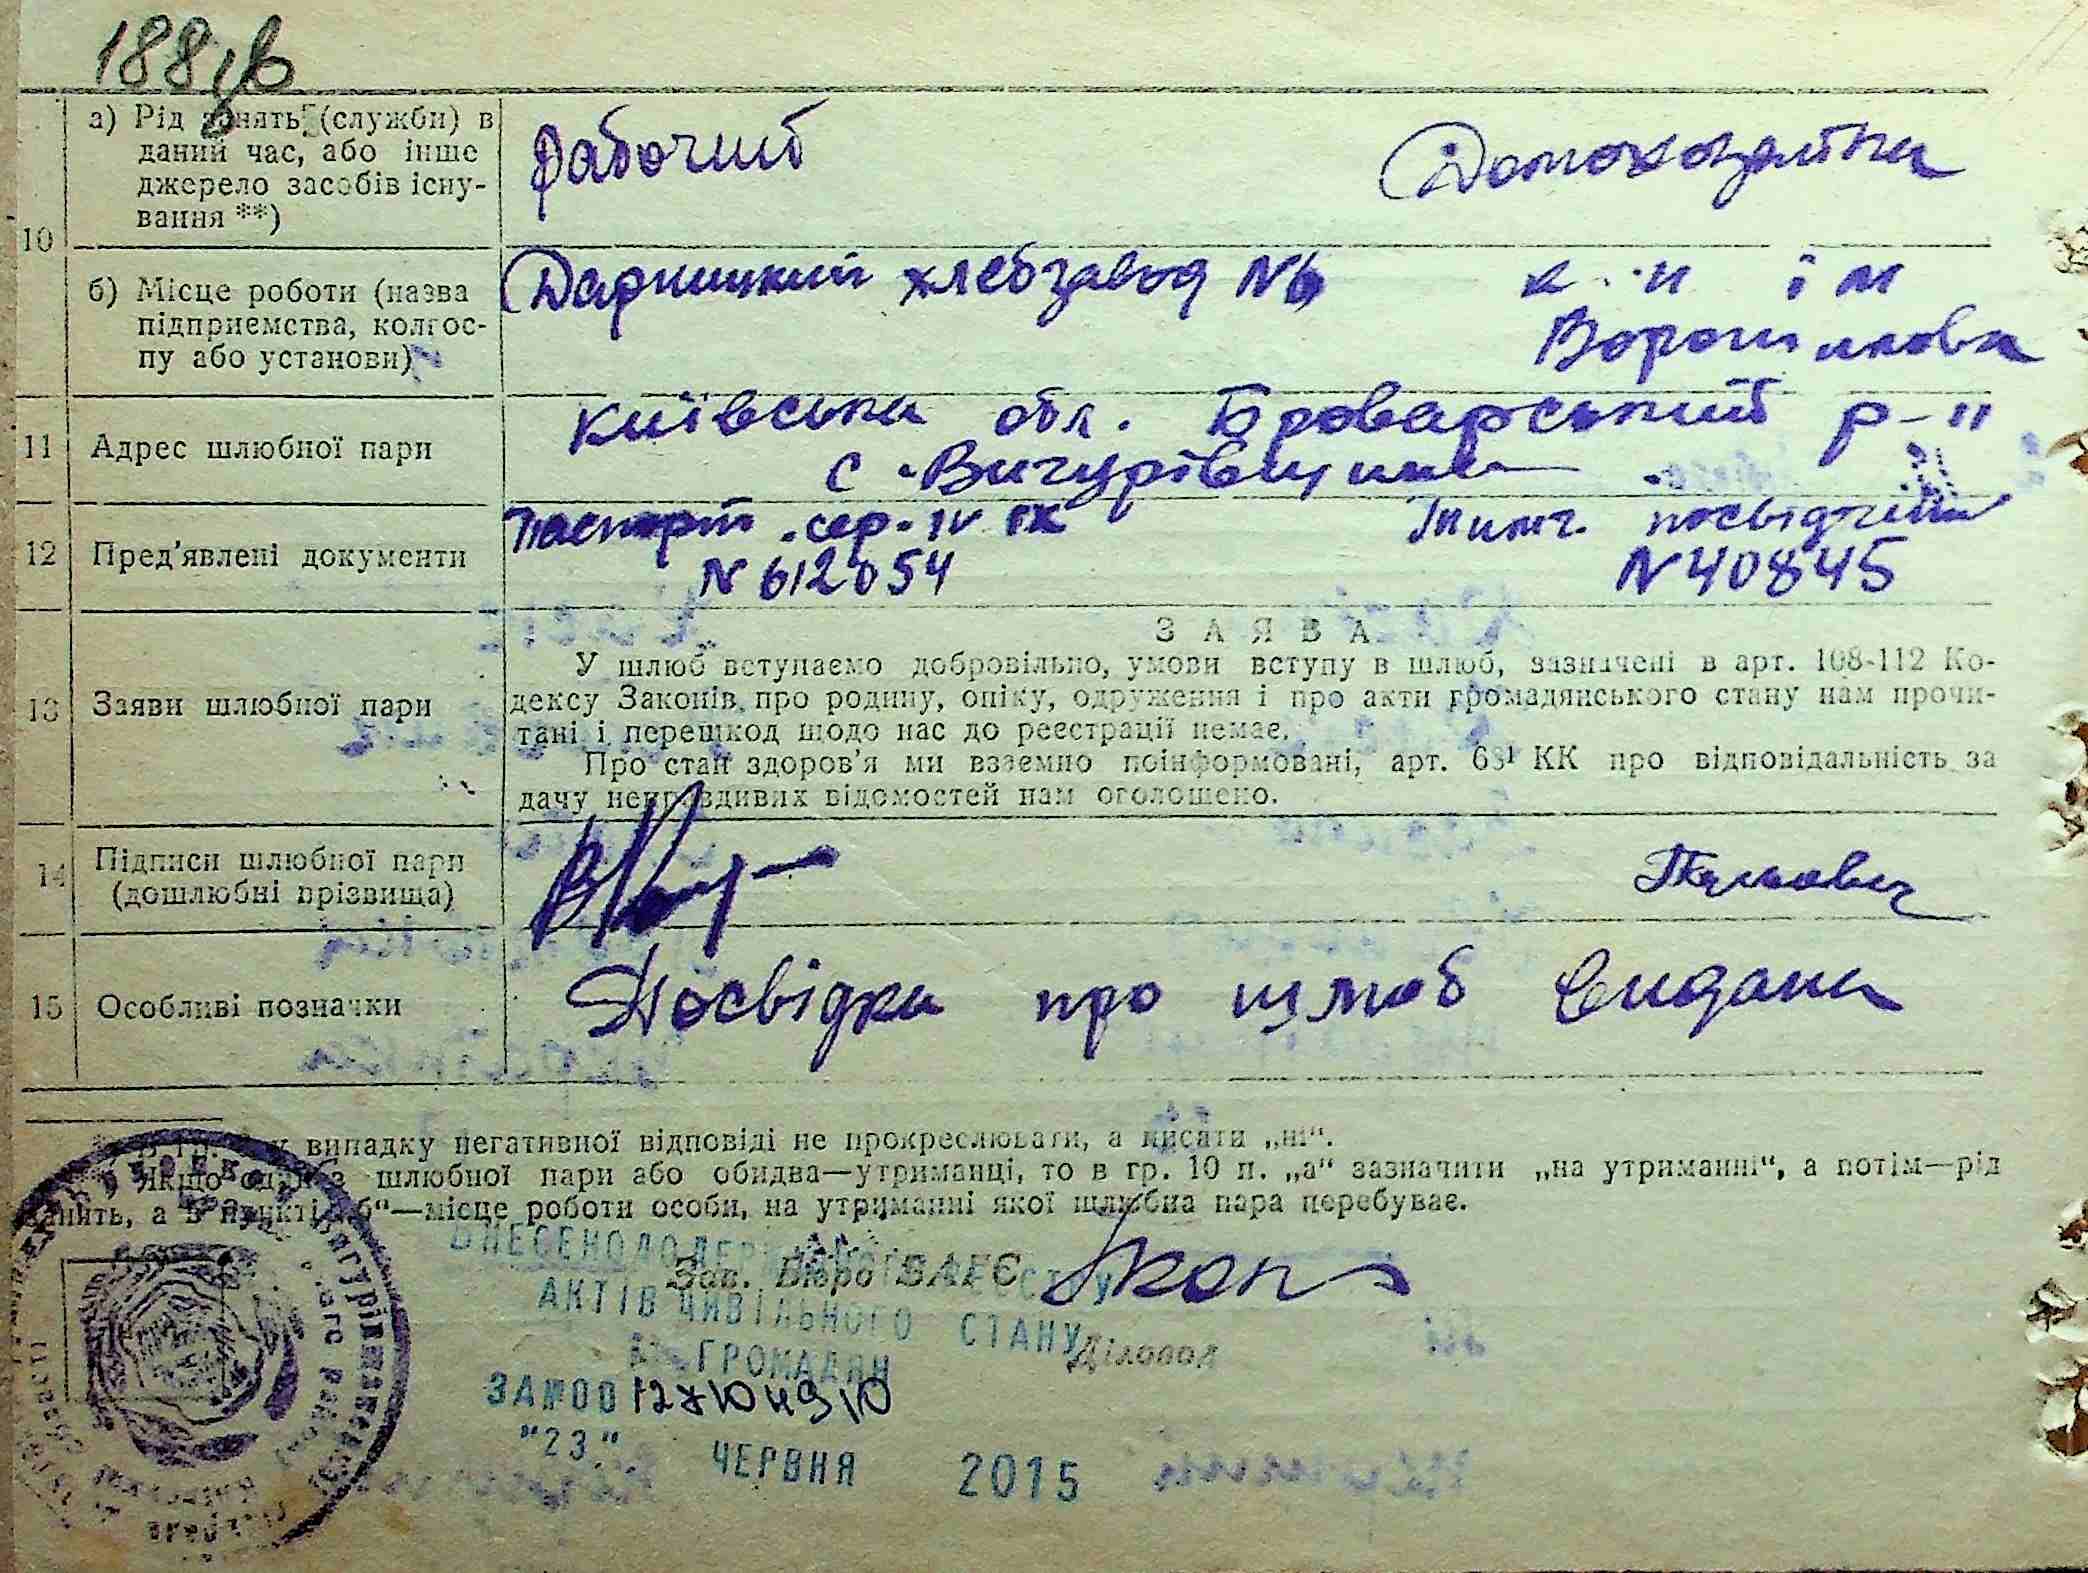 188
а) Рід занять (служби) в
даний час, або інше
джерело засобів існу-
вання **)
Рабочий
Домохозяйка
10
б) Місце роботи (назва
підприємства, колгос-
пу або установи)
Дарницкий хлебзавод №
к ім
Ворошилова
11
Адрес шлюбної пари
Київська обл. Броварський р-н
с. Вигурівщина
12
Пред'явлені документи
Паспорт сер. IV
N 612054
Тимч. посвідчення
N 40845
13
Заяви шлюбної пари
ЗАЯВА
У шлюб вступаємо добровільно, умови вступу в шлюб, зазначені в арт. 108-112 Ко-
дексу Законів про родину, опіку, одруження і про акти громадянського стану нам прочи-
тані і перешкод щодо нас до реєстрації немає.
Про стан здоров'я ми взаємно поінформовані, арт. 68¹ КК про відповідальність за
дачу неправдивих відомостей нам оголошено.
14
Підписи шлюбної пари
(дошлюбні прізвища)
15
Особливі позначки
Посвідка про шлюб видана
випадку негативної відповіді не прокреслювати, а писати „ні“.
Якщо один з шлюбної пари або обидва—утриманці, то в гр. 10 п. „а“ зазначити „на утриманні“, а потім—рід
занять, а в пункті „б“—місце роботи особи, на утриманні якої шлюбна пара перебуває.
Зав. Бюро ЗАГС
Діловод
ВНЕСЕНО ДО ДЕРЖАВНОГО РЕЄСТРУ
АКТІВ ЦИВІЛЬНОГО СТАНУ
ГРОМАДЯН
ЗА №00
"23" ЧЕРВНЯ 2015